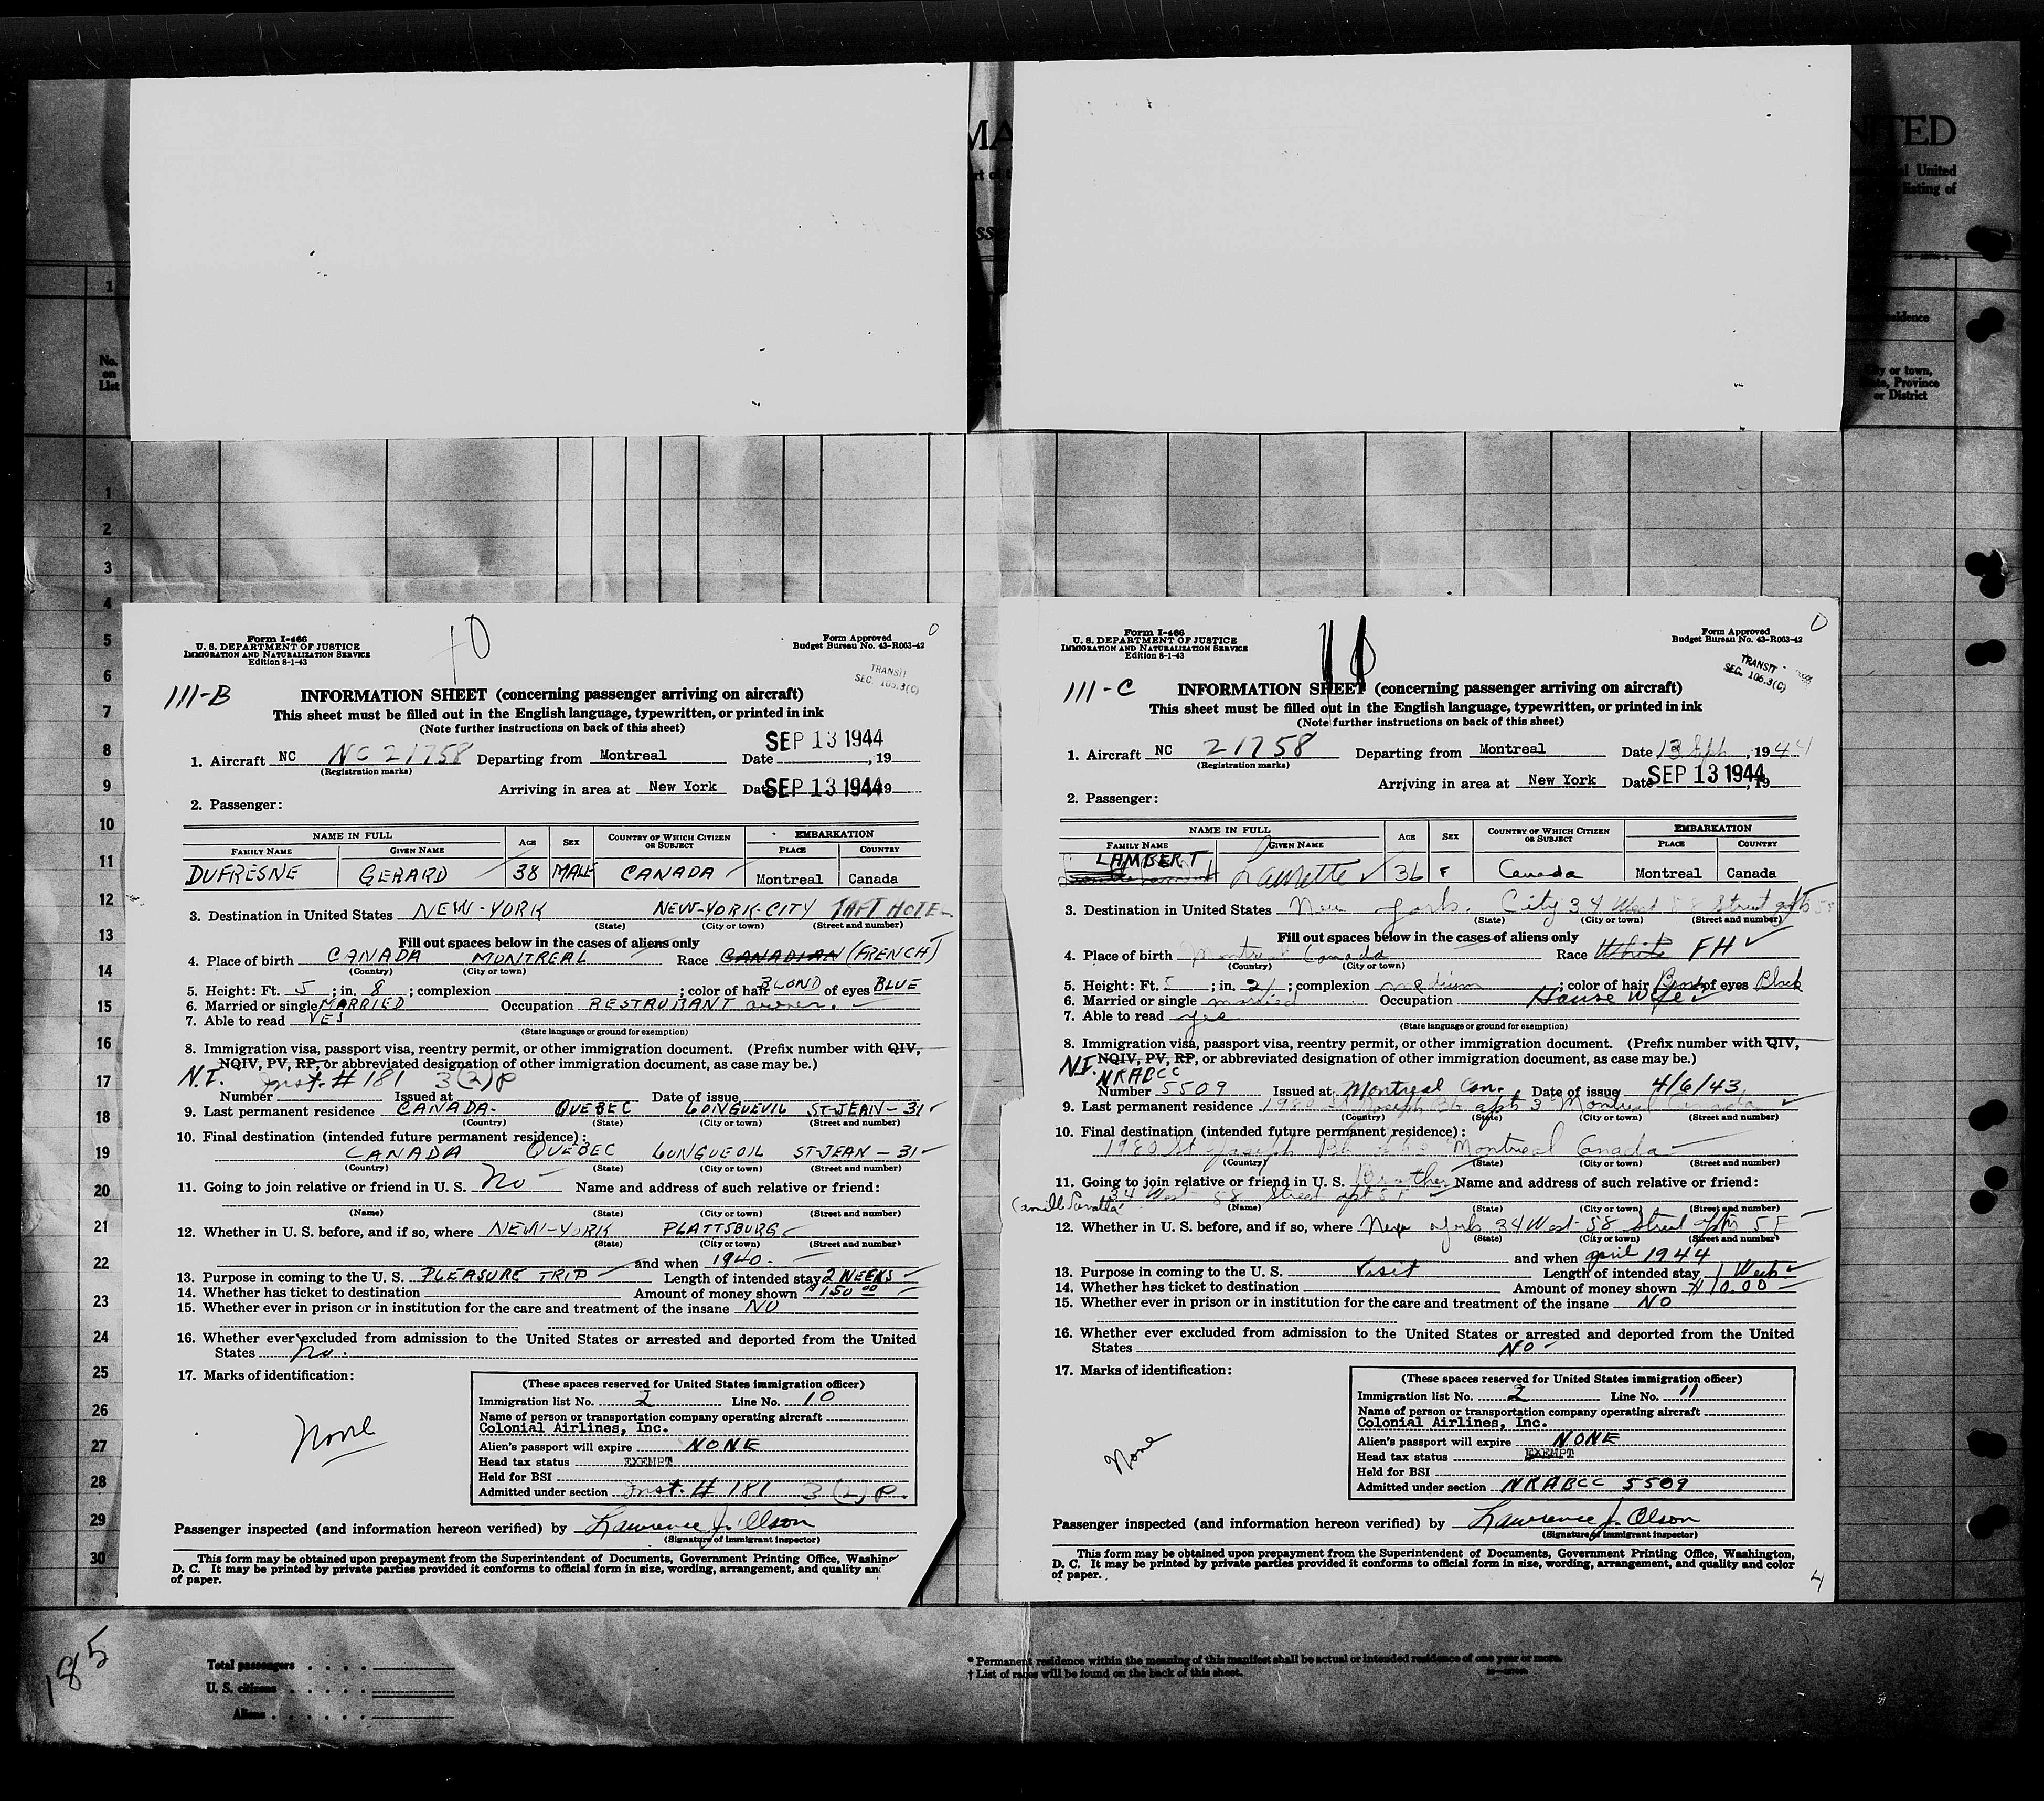 MA
NITED
United
listing of
1
No.
on
List
City or town,
State, Province
or District
1
2
3
4
5
6
7
8
9
10
11
12
13
14
15
16
17
18
19
20
21
22
23
24
25
26
27
28
29
30
10
0
Form I-466
U. S. DEPARTMENT OF JUSTICE
IMMIGRATION AND NATURALIZATION SERVICE
Edition 8-1-43
Form Approved
Budget Bureau No. 43-R063-42
TRANSIT
SEC. 105.3(C)
111-B
INFORMATION SHEET (concerning passenger arriving on aircraft)
This sheet must be filled out in the English language, typewritten, or printed in ink
(Note further instructions on back of this sheet)
1. Aircraft NC NC 21758 Departing from Montreal Date SEP 13 1944, 19
(Registration marks)
Arriving in area at New York Date SEP 13 1944 19
2. Passenger:
NAME IN FULL AGE SEX COUNTRY OF WHICH CITIZEN OR SUBJECT EMBARKATION
FAMILY NAME GIVEN NAME PLACE COUNTRY
DUFRESNE GERARD 38 MALE CANADA Montreal Canada
3. Destination in United States NEW-YORK NEW-YORK-CITY TAFT HOTEL
(State) (City or town) (Street and number)
Fill out spaces below in the cases of aliens only
4. Place of birth CANADA MONTREAL Race CANADIAN (FRENCH)
(Country) (City or town)
5. Height: Ft. 5; in. 8; complexion ; color of hair BLOND of eyes BLUE
6. Married or single MARRIED Occupation RESTAURANT owner.
7. Able to read YES
(State language or ground for exemption)
8. Immigration visa, passport visa, reentry permit, or other immigration document. (Prefix number with QIV,
NQIV, PV, RP, or abbreviated designation of other immigration document, as case may be.)
N.I. Inst. # 181 3(2)P
Number Issued at Date of issue
9. Last permanent residence CANADA- QUEBEC LONGUEUIL ST-JEAN-31
(Country) (State) (City or town) (Street and number)
10. Final destination (intended future permanent residence):
CANADA QUEBEC LONGUEUIL ST-JEAN-31
(Country) (State) (City or town) (Street and number)
11. Going to join relative or friend in U. S. No Name and address of such relative or friend:
(Name) (State) (City or town) (Street and number)
12. Whether in U. S. before, and if so, where NEW-YORK PLATTSBURG
(State) (City or town) (Street and number)
and when 1940.
13. Purpose in coming to the U. S. PLEASURE TRIP Length of intended stay 2 WEEKS
14. Whether has ticket to destination Amount of money shown $150 00
15. Whether ever in prison or in institution for the care and treatment of the insane NO
16. Whether ever excluded from admission to the United States or arrested and deported from the United
States No.
17. Marks of identification:
None
(These spaces reserved for United States immigration officer)
Immigration list No. 2 Line No. 10
Name of person or transportation company operating aircraft
Colonial Airlines, Inc.
Alien's passport will expire NONE
Head tax status EXEMPT
Held for BSI
Admitted under section Inst. # 181 3(2)P.
Passenger inspected (and information hereon verified) by Lawrence J. Olson
(Signature of immigrant inspector)
This form may be obtained upon prepayment from the Superintendent of Documents, Government Printing Office,
D. C. It may be printed by private parties provided it conforms to official form in size, wording, arrangement, and quality
of paper.
11
0
Form I-466
U. S. DEPARTMENT OF JUSTICE
IMMIGRATION AND NATURALIZATION SERVICE
Edition 8-1-43
Form Approved
Budget Bureau No. 43-R063-42
TRANSIT
SEC. 105.3(C)
111-C
INFORMATION SHEET (concerning passenger arriving on aircraft)
This sheet must be filled out in the English language, typewritten, or printed in ink
(Note further instructions on back of this sheet)
1. Aircraft NC 21758 Departing from Montreal Date 13 Sept, 1944
(Registration marks)
Arriving in area at New York Date SEP 13 1944, 19
2. Passenger:
NAME IN FULL AGE SEX COUNTRY OF WHICH CITIZEN OR SUBJECT EMBARKATION
FAMILY NAME GIVEN NAME PLACE COUNTRY
LAMBERT Laurette 36 F Canada Montreal Canada
3. Destination in United States New York. City 34 West 58 Street apt 5F
(State) (City or town) (Street and number)
Fill out spaces below in the cases of aliens only
4. Place of birth Montreal Canada Race White FH
(Country) (City or town)
5. Height: Ft. 5; in. 2; complexion medium; color of hair of eyes Black
6. Married or single married Occupation House Wife
7. Able to read yes
(State language or ground for exemption)
8. Immigration visa, passport visa, reentry permit, or other immigration document. (Prefix number with QIV,
NQIV, PV, RP, or abbreviated designation of other immigration document, as case may be.)
N.I. NRABCC
Number 5509 Issued at Montreal Can. Date of issue 4/6/43
9. Last permanent residence 1980 St Joseph apt 3 Montreal Canada
(Country) (State) (City or town) (Street and number)
10. Final destination (intended future permanent residence):
1980 St Joseph apt 3 Montreal Canada
(Country) (State) (City or town) (Street and number)
11. Going to join relative or friend in U. S. Brother Name and address of such relative or friend:
34 West 58 Street apt 5F
(Name) (State) (City or town) (Street and number)
12. Whether in U. S. before, and if so, where New York 34 West 58 Street apt 5F
(State) (City or town) (Street and number)
and when april 1944
13. Purpose in coming to the U. S. Visit Length of intended stay 1 Week
14. Whether has ticket to destination Amount of money shown $10.00
15. Whether ever in prison or in institution for the care and treatment of the insane NO
16. Whether ever excluded from admission to the United States or arrested and deported from the United
States NO
17. Marks of identification:
None
(These spaces reserved for United States immigration officer)
Immigration list No. 2 Line No. 11
Name of person or transportation company operating aircraft
Colonial Airlines, Inc.
Alien's passport will expire NONE
Head tax status EXEMPT
Held for BSI
Admitted under section NRABCC 5509
Passenger inspected (and information hereon verified) by Lawrence J. Olson
(Signature of immigrant inspector)
This form may be obtained upon prepayment from the Superintendent of Documents, Government Printing Office, Washington,
D. C. It may be printed by private parties provided it conforms to official form in size, wording, arrangement, and quality and color
of paper.
4
185
Total passengers
U. S. citizens
Aliens
* Permanent residence within the meaning of this manifest shall be actual or intended residence of one year or more.
† List of races will be found on the back of this sheet.